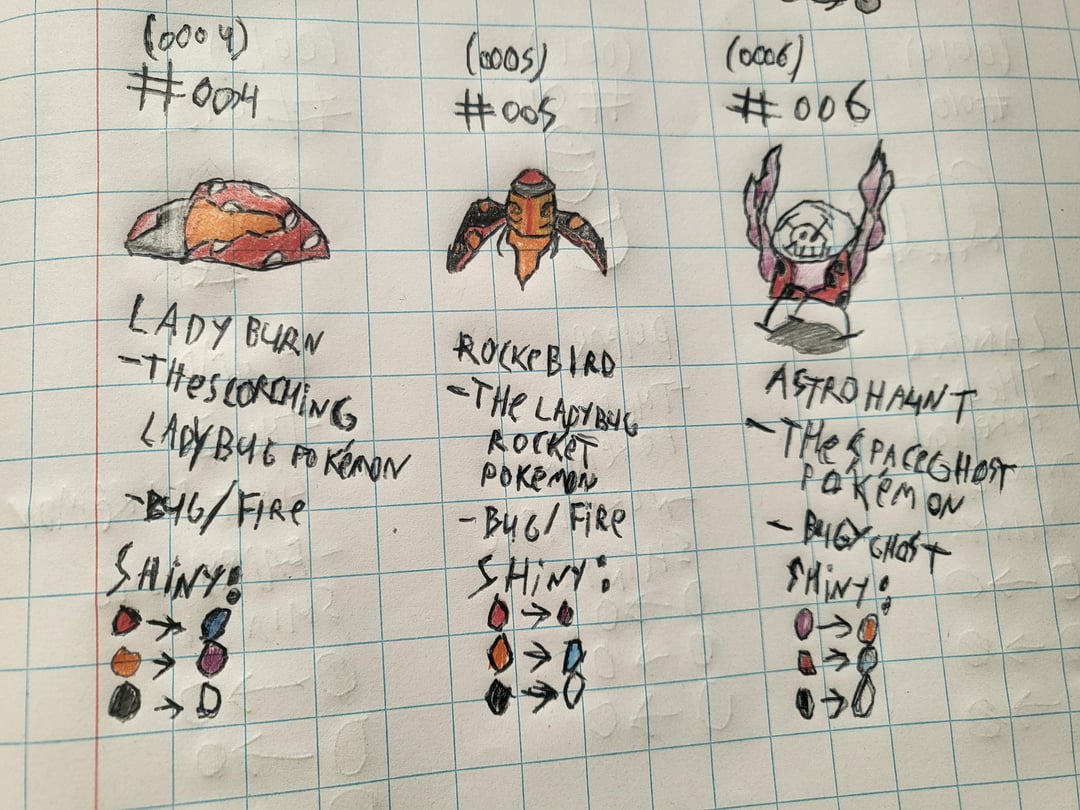 (0004)
#004
LADYBURN
-THE SCORCHING
LADYBUG POKéMON
-BUG/FIRE
SHINY:
(0005)
#005
ROCKEBIRD
-THE LADYBUG
ROCKET
POKEMON
-BUG/FIRE
SHINY:
(0006)
#006
ASTROHAUNT
-THE SPACEGHOST
POKéMON
-BUG/GHOST
SHINY: